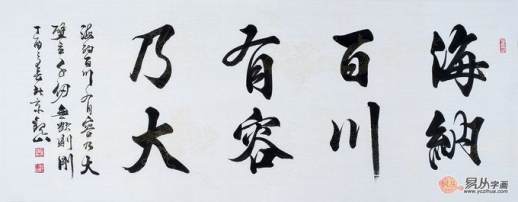 海納
百川
有容
乃大
海納百川有容乃大
壁立千仞無欲則剛
丁酉北京
易从字画
www.yczihua.com